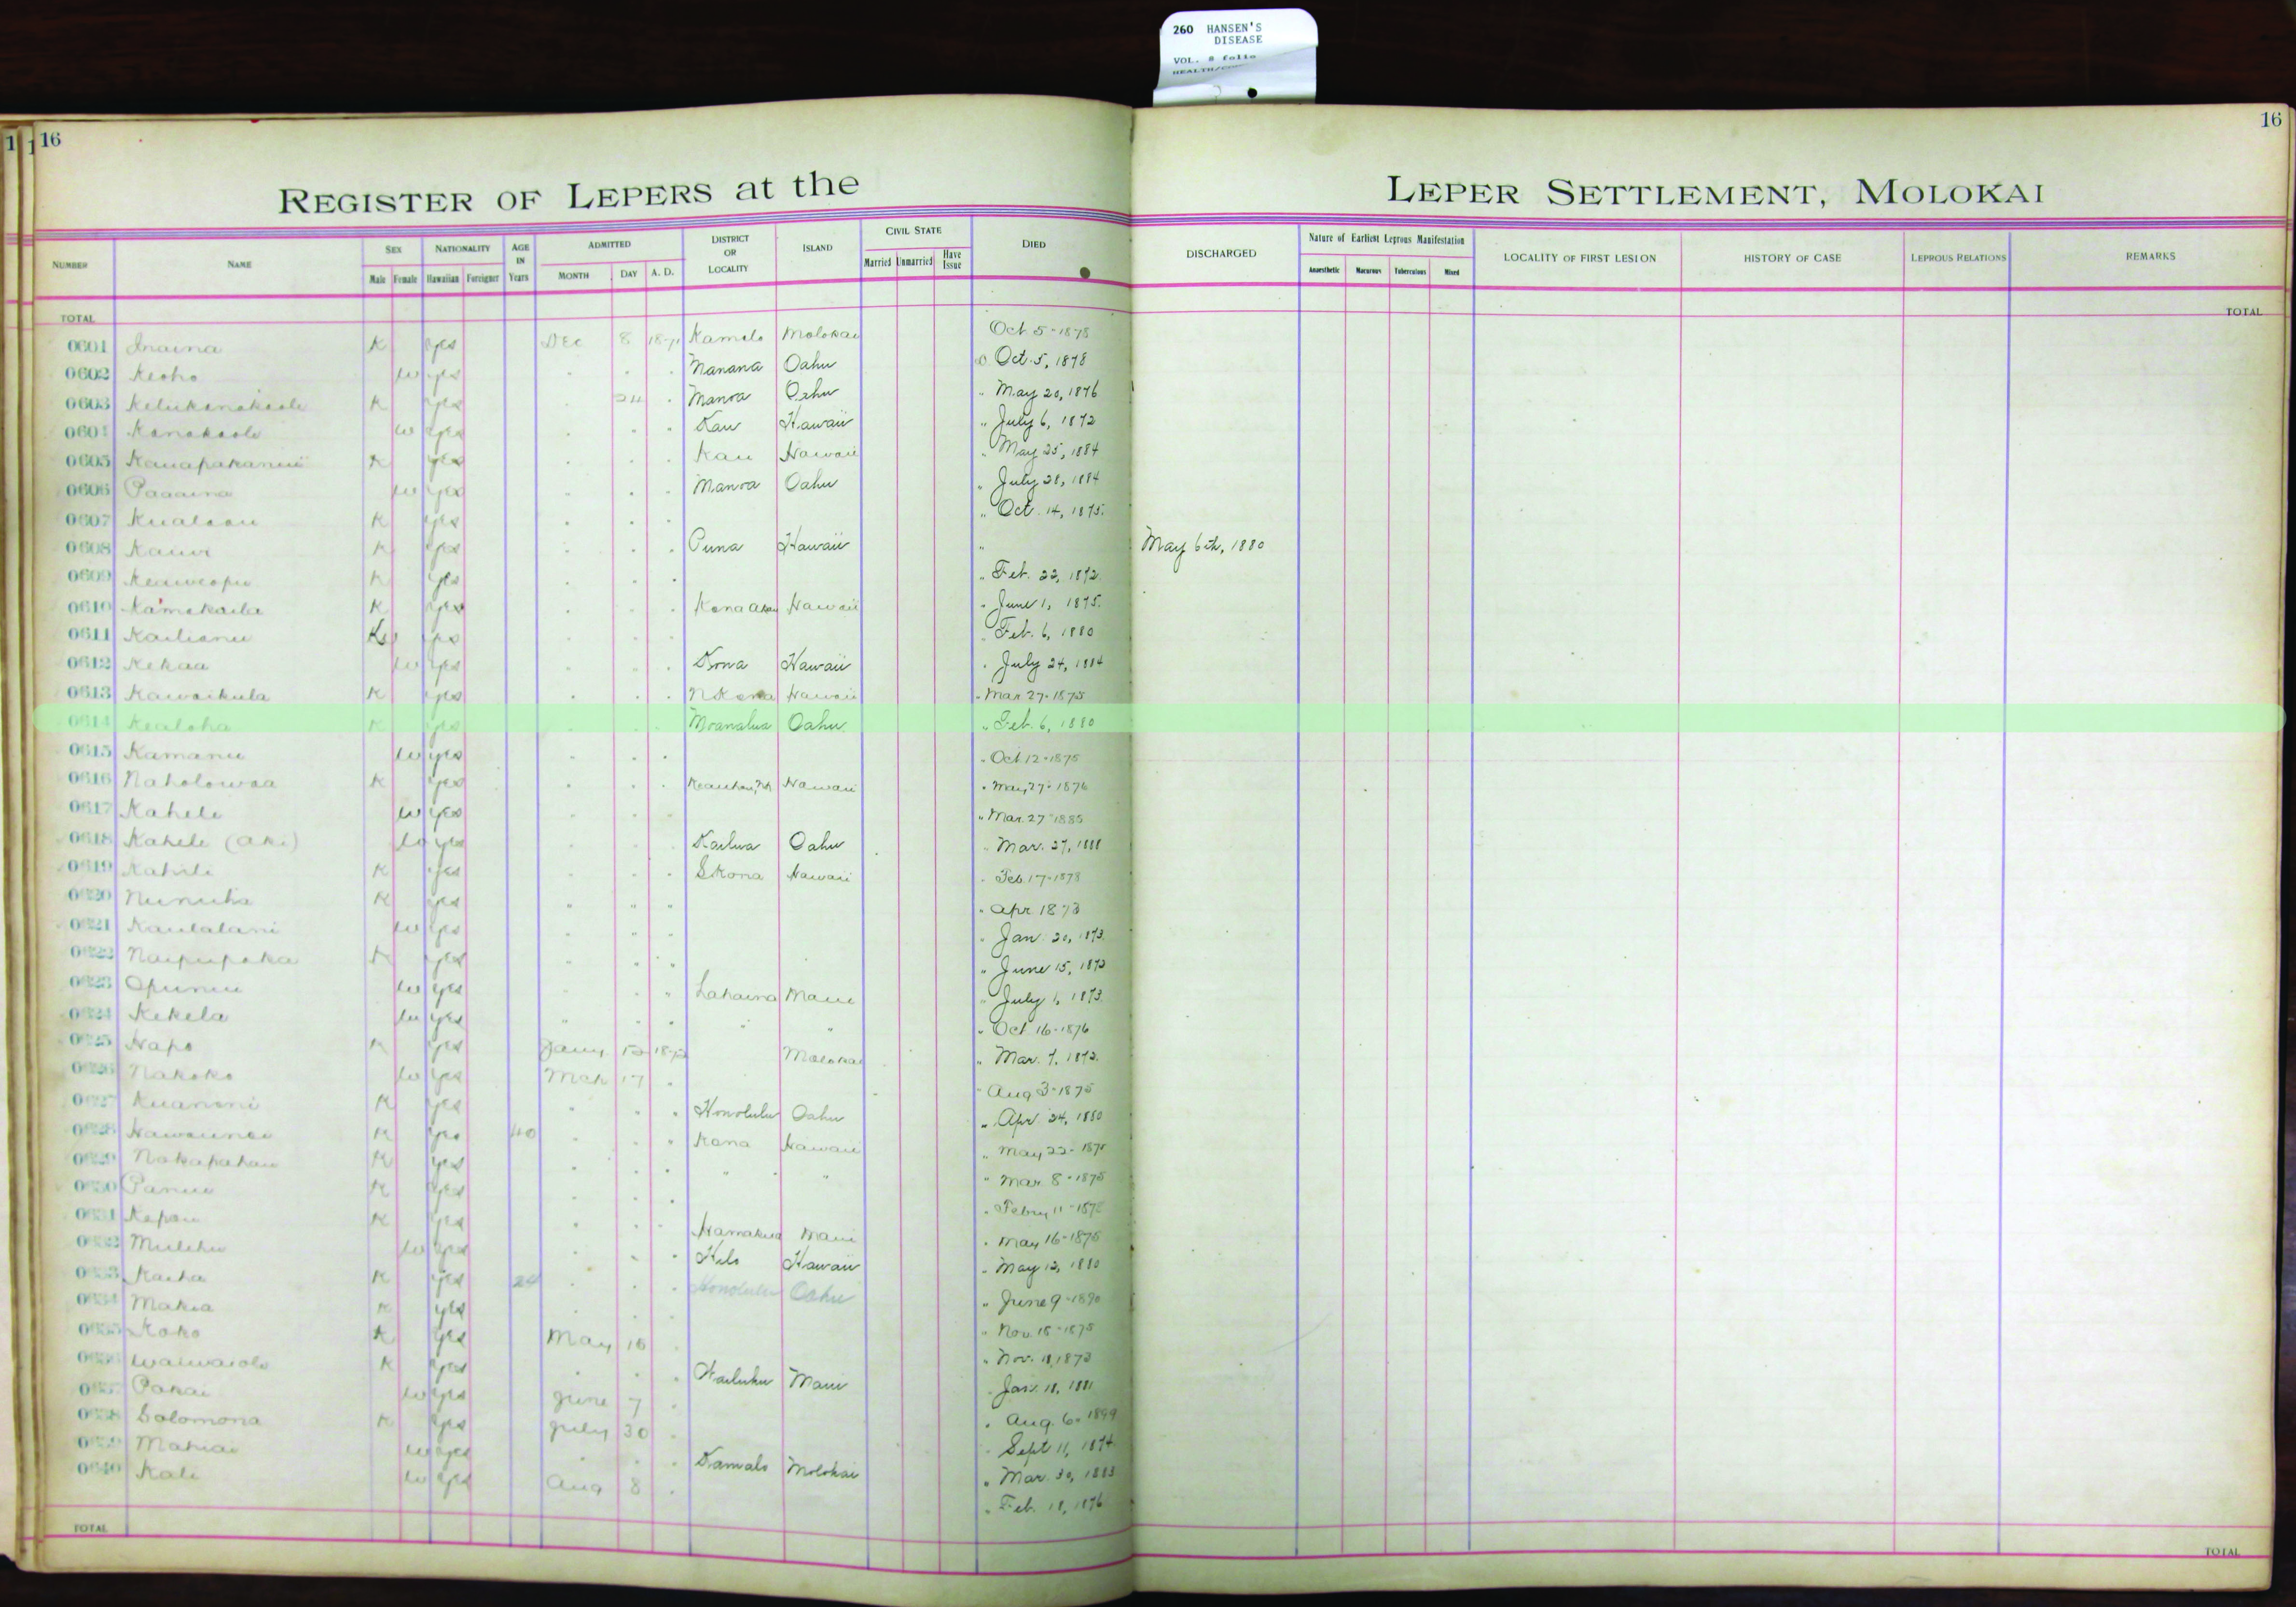 260 HANSEN'S
DISEASE
VOL. 8 folio
16
16
REGISTER OF LEPERS at the
LEPER SETTLEMENT, MOLOKAI
NUMBER NAME SEX Male Female NATIONALITY Hawaiian Foreigner AGE IN Years ADMITTED MONTH DAY A. D. DISTRICT OR LOCALITY ISLAND CIVIL STATE Married Unmarried Have Issue DIED DISCHARGED Nature of Earliest Leprous Manifestation Anaesthetic Macurous Tuberculous Mixed LOCALITY OF FIRST LESION HISTORY OF CASE LEPROUS RELATIONS REMARKS
TOTAL TOTAL
0601 Inaina K yes Dec 8 1871 Kamalo Molokai Oct 5-1878
0602 Keoho w yes Manana Oahu D Oct. 5, 1878
0603 K yes 24 Manoa Oahu " May 20, 1876
0604 Kanakaole w yes Kau Hawaii " July 6, 1872
0605 K yes Kau Hawaii " May 25, 1884
0606 Paaaina w yes Manoa Oahu " July 28, 1884
0607 Kualoau K yes " Oct. 14, 1875.
0608 Kauwi K yes Puna Hawaii " May 6th, 1880
0609 Keaweopu K yes " Feb. 22, 1872.
0610 Kamakaila K yes Kona Akau Hawaii " June 1, 1875.
0611 Kailianu yes " Feb. 6, 1880
0612 Kekaa w yes Kona Hawaii " July 24, 1884
0613 Kawaikula K yes N Kona Hawaii " Mar 27-1875
0614 Kealoha K yes Moanalua Oahu " Feb. 6, 1880
0615 Kamanu w yes " Oct 12-1875
0616 Naholowaa K yes Keauhou, Hawaii " May 27-1876
0617 Kahele w yes " Mar. 27-1885
0618 Kahele (Aki) w yes Kailua Oahu " Mar. 27, 1888
0619 K yes S Kona Hawaii " Feb. 17-1878
0620 Nunuha K yes " " " " Apr 1873
0621 Kaulalani w yes " Jan. 20, 1873.
0622 Naipupaka K yes " June 15, 1873
0623 Opunui w yes Lahaina Maui " July 1, 1873.
0624 Kekela w yes " " " Oct 16-1876
0625 Hapo K yes Jany 12 1872 Molokai " Mar. 7, 1872.
0626 Nakoko w yes Mch 17 " Aug 3-1875
0627 Kuanoni K yes Honolulu Oahu " Apr. 24, 1880
0628 K yes 40 Kona Hawaii " May 22-1875
0629 Nakapahau K yes " " " Mar 8-1875
0630 Panui K yes " Febry 11-1875
0631 Kepau K yes Hamakua Maui " May 16-1875
0632 Mulehu w yes Hilo Hawaii " May 12, 1880
0633 Kaiha K yes 24 Honolulu Oahu " June 9-1890
0634 Makia K yes " Nov. 15-1875
0635 Koko K yes May 15 " Nov. 11, 1873
0636 Waiwaiole K yes Wailuku Maui " Jan. 18, 1881
0637 Pakai w yes June 7 " Aug. 6-1899
0638 Solomona K yes July 30 " Sept 11, 1874
0639 Mahiai w yes Kamalo Molokai " Mar. 30, 1883
0640 Kali w yes Aug 8 " Feb. 18, 1876
TOTAL TOTAL